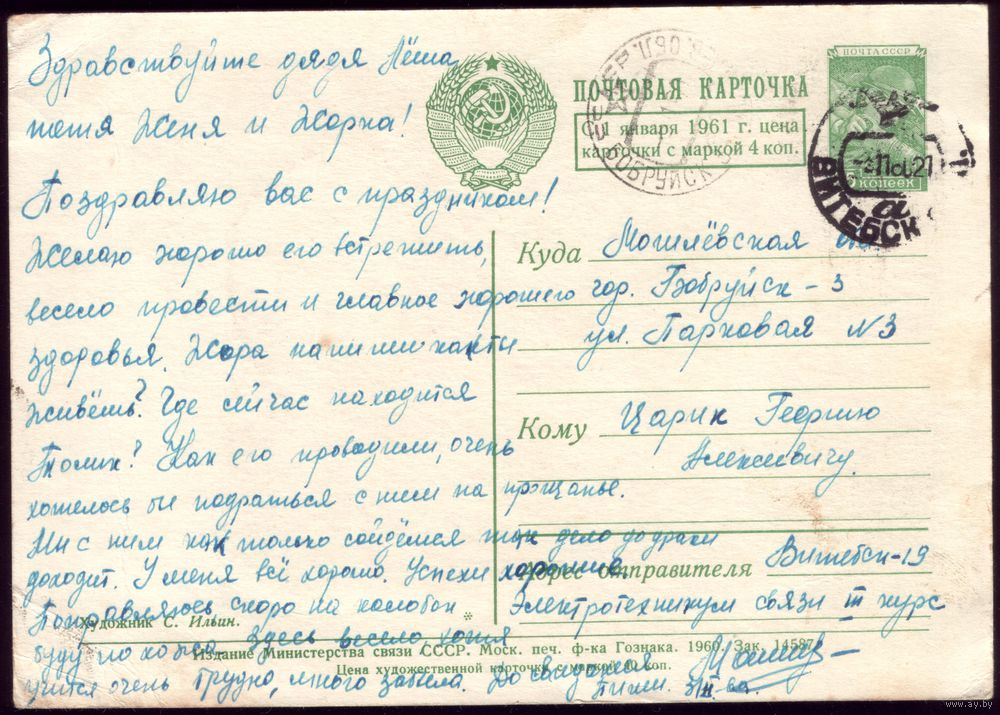 Здравствуйте дядя Лёша
тётя Женя и Жорка!
Поздравляю вас с праздником!
Желаю хорошо его встретить,
весело провести и главное хорошего
здоровья. Жора напиши как ты
живёшь? Где сейчас находится
Толик? Как его проводили, очень
хотелось бы подраться с ним на прощанье.
Мы с ним как только сойдёмся так дело до драки
доходит. У меня всё хорошо. Успехи хорошие.
Поправляюсь скоро на колобок
буду похож. Здесь весело, хотя
учится очень трудно, много
До свидания
Пиши.
ПОЧТОВАЯ КАРТОЧКА
С 1 января 1961 г. цена
карточки с маркой 4 коп.
ПОЧТА СССР
КОПЕЕК
БОБРУЙСК
ВИТЕБСК
Куда Могилёвская
гор. Бобруйск-3
ул. Парковая N3
Кому Царик Георгию
Алексеевичу
Адрес отправителя Витебск-19
Электротехникум связи III курс
Художник С. Ильин.
Издание Министерства связи СССР. Моск. печ. ф-ка Гознака. 1960. Зак. 14587.
Цена художественной карточки с маркой 40 коп.
www.ay.by